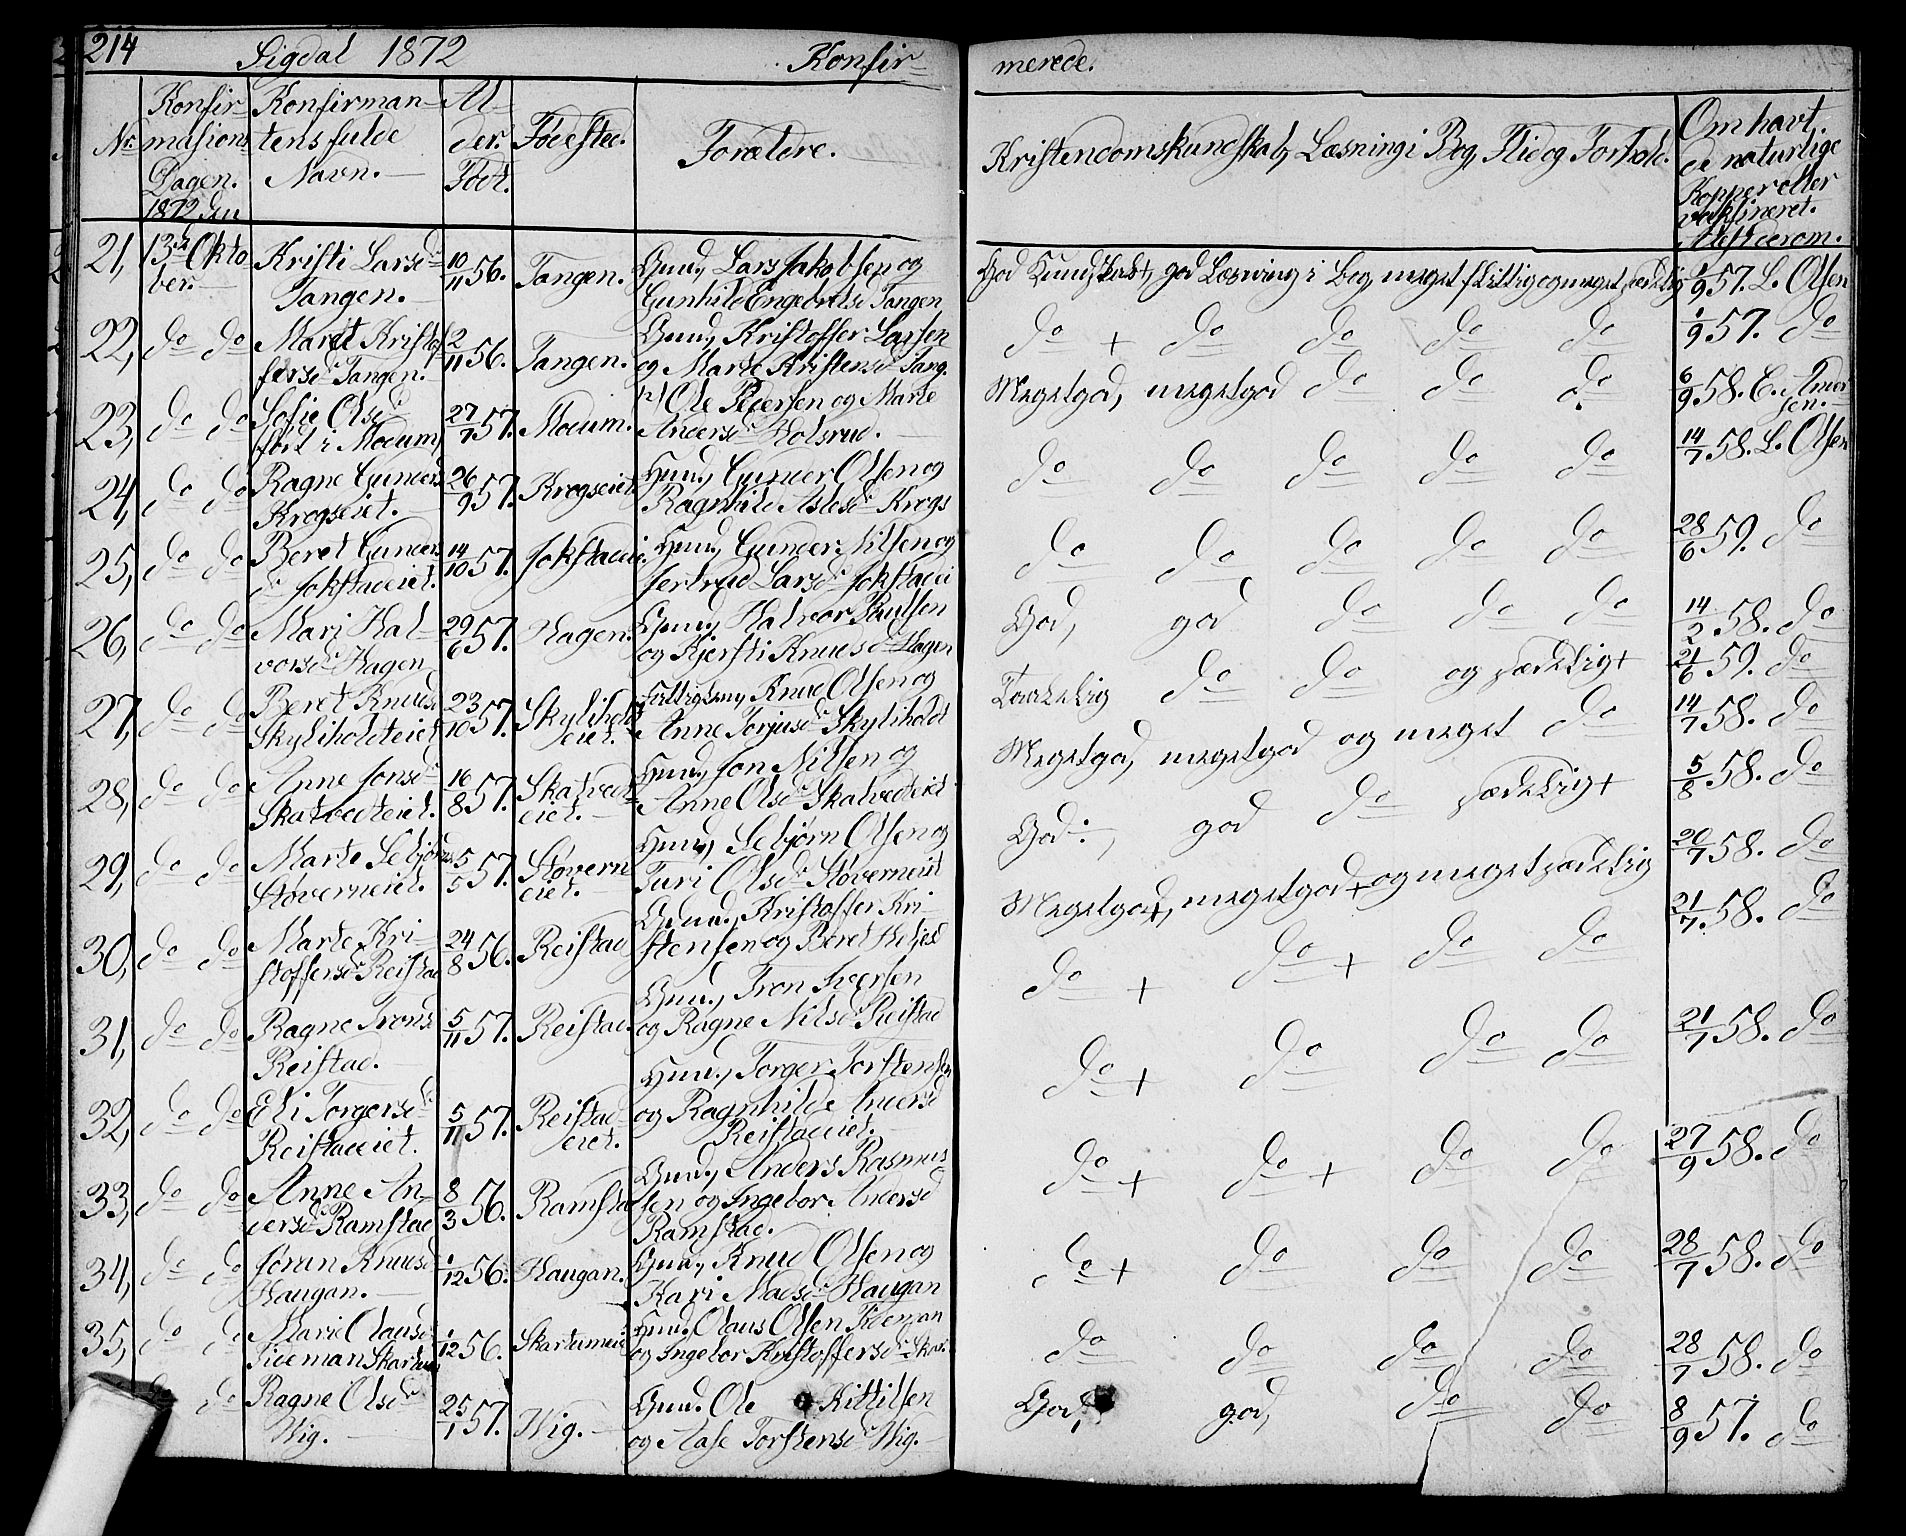 214 Sigdal 1872 Konfir-
merede.
Nr. Konfir- masions Dagen. 1872 den
Konfirman- tens fulde Navn.
Al- der. Født.
Fødested.
Forældre.
Kristendomskundskab, Læsning i Bog, Flid og Forhold.
Om havt de naturlige Kopper eller vaksineret. Attest derom.
21, 13de Okto- Kristi Larsd. 10/11 56. Tangen. Gmd. Lars Jakobsen og God Kundskab, god Læsning i Bog, meget flittig og meget sædelig 1/9 57. L. Olsen
ber. Tangen. Gunhild Engebretsd. Tangen
22, do do Marit Kristof 2/11 56. Tangen. Gmd. Kristoffer Larsen do + do do do do 1/9 57. do
fersd. Tangen. og Marte Kristensd. Tang.
23, do do Sofie Olsd. 27/7 57. Modum. Ole Pedersen og Marte Megetgod, megetgod do do do 6/9 58. C. Ander
født i Modum, Andersd. Holsrud. sen.
24, do do Ragne Gunders 26/9 57. Krogseiet Hmd. Gunder Olsen og do do do do do 14/7 58. L. Olsen
Krogseiet. Ragnhild Aslesd. Krogs
25, do do Beret Gunders 14/10 57. Jokstadei. Hmd. Gunder Nilsen og do do do do do 28/6 59. do
d. Jokstadeiet. Jertrud Larsd. Jokstadei
26, do do Mari Hal- 29/6 57. Hagen. Gmd. Halvor Paulsen God, god do do do 14/2 58. do
vorsd. Hagen og Kjersti Knudsd. Hagen
27, do do Beret Knuds 23/10 57. Skylihold Knud Olsen og Taalelig do do og sædelig+ 21/6 59. do
Skyliholdteiet eiet. Anne Torjusd. Skylihold
28, do do Anne Jonsd. 16/8 57. Skatvedt Hmd. Jon Nilsen og Megetgod, megetgod og meget do 14/7 58. do
Skatvedteiet. eiet. Anne Olsd. Skatvedteiet
29, do do Marte Sebjørns 5/5 57. Støvern Hmd. Sebjørn Olsen og God, god do sædelig+ 5/8 58. do
Støverneiet. eiet. Turi Olsd. Støverneiet
30, do do Marte Kri- 24/8 56. Reistad Gmd. Kristoffer Kri- Megetgod, megetgod+ og meget sædelig 20/7 58. do
stoffersd. Reistad stensen og Beret Helgesd
31, do do Ragne Trons 5/11 57. Reistad. Gmd. Tron Iversen do + do + do do 21/7 58. do
Reistad. og Ragne Nilsd. Reistad
32, do do Eli Torgersd. 5/11 57. Reistad- Hmd. Torger Torstensen do + do do do 21/7 58. do
Reistadeiet. eiet. og Ragnhild Andersd
Reistadeiet.
33, do do Anne An- 8/3 56. Ramstad Gmd. Anders Rasmus do + do + do do 27/9 58. do
dersd. Ramstad sen og Ingebor Andersd
Ramstad.
34, do do Jøran Knudsd 1/12 56. Haugan. Gmd. Knud Olsen og do + do do do 28/7 58. do
Haugan. Kari Madsd. Haugan
35, do do Marie Olausd 1/12 56. Skartumeie Hmd. Olaus Olsen Tideman do do do do 28/7 58. do
Tideman Skartum og Ingebor Kristoffersd. Skar.
do Ragne Olsd. 25/1 57. Wig. Gmd. Ole Kittilsen God, god, do do 8/9 57. do
Wig. og Aase Torstensd. Wig.